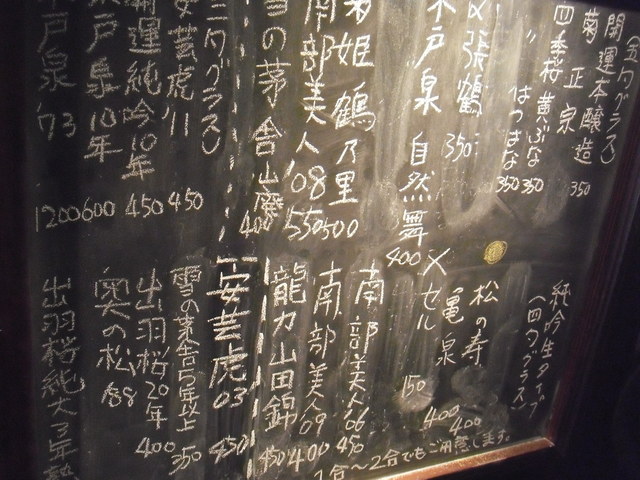 (五勺グラス)
開運本醸造
菊正宗 350
四季桜 黄ぶな 350
〃 はつはな 350
〆張鶴 350
木戸泉 自然舞 400
菊姫 鶴乃里 500
南部美人'08 550
雪の茅舎山廃 400
ニ勺グラス)
安芸虎'11 450
開運純吟10年 450
木戸泉10年 600
木戸泉'73 1200
純吟生タイプ
(四勺グラス)
松の寿 400
亀泉 400
×セル 150
南部美人'06 450
南部美人'09 400
龍力山田錦 450
安芸虎'03 450
雪の茅舎5年以上 350
出羽桜20年 400
奥の松'88
出羽桜純大3年熟
1合〜2合でもご用意します。